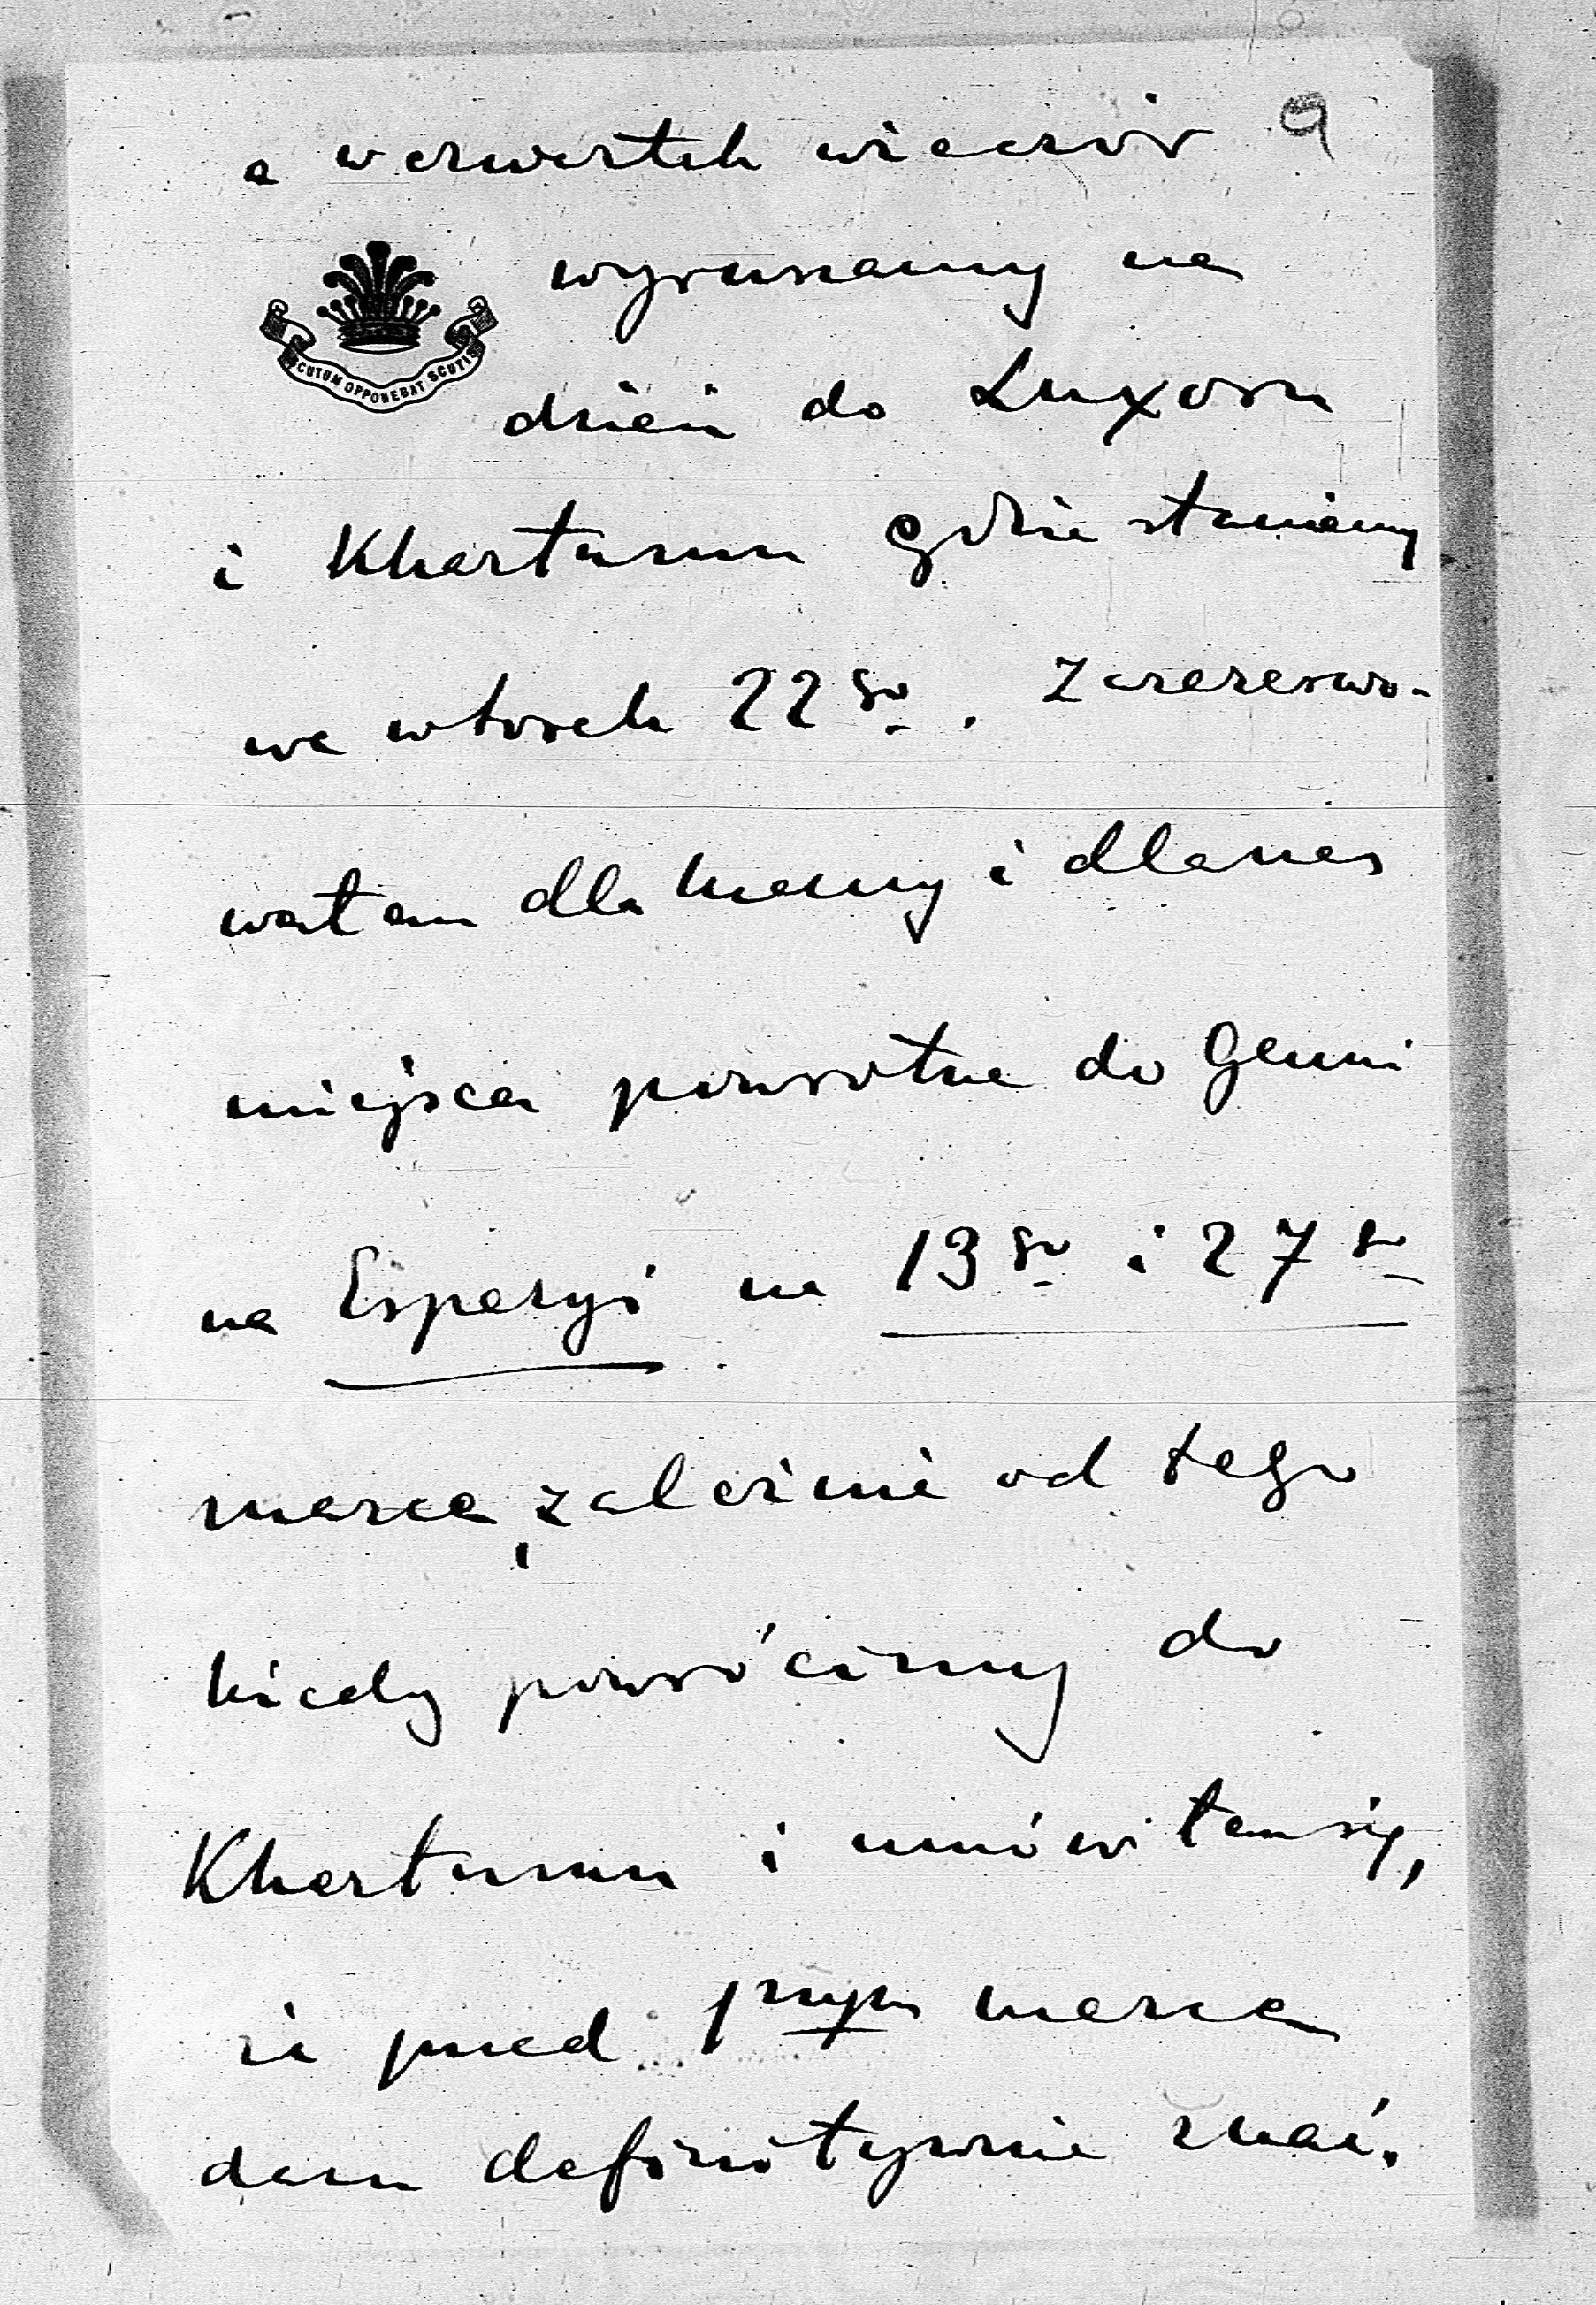 9
a w czwartek wieczór
wyruszamy na
SCUTUM OPPONEBAT SCUTIS
dzień do Luxoru
i Khartumu gdzie staniemy
we wtorek 22go. Zarezerwo-
wałam dla Mamy i dla nas
miejsca powrotne do Genui
na Esperyi na 13go i 27go
marca, zależnie od tego
kiedy powrócimy do
Khartumu i umówiłam się,
że przed 1szym marca
dam definitywnie znać.